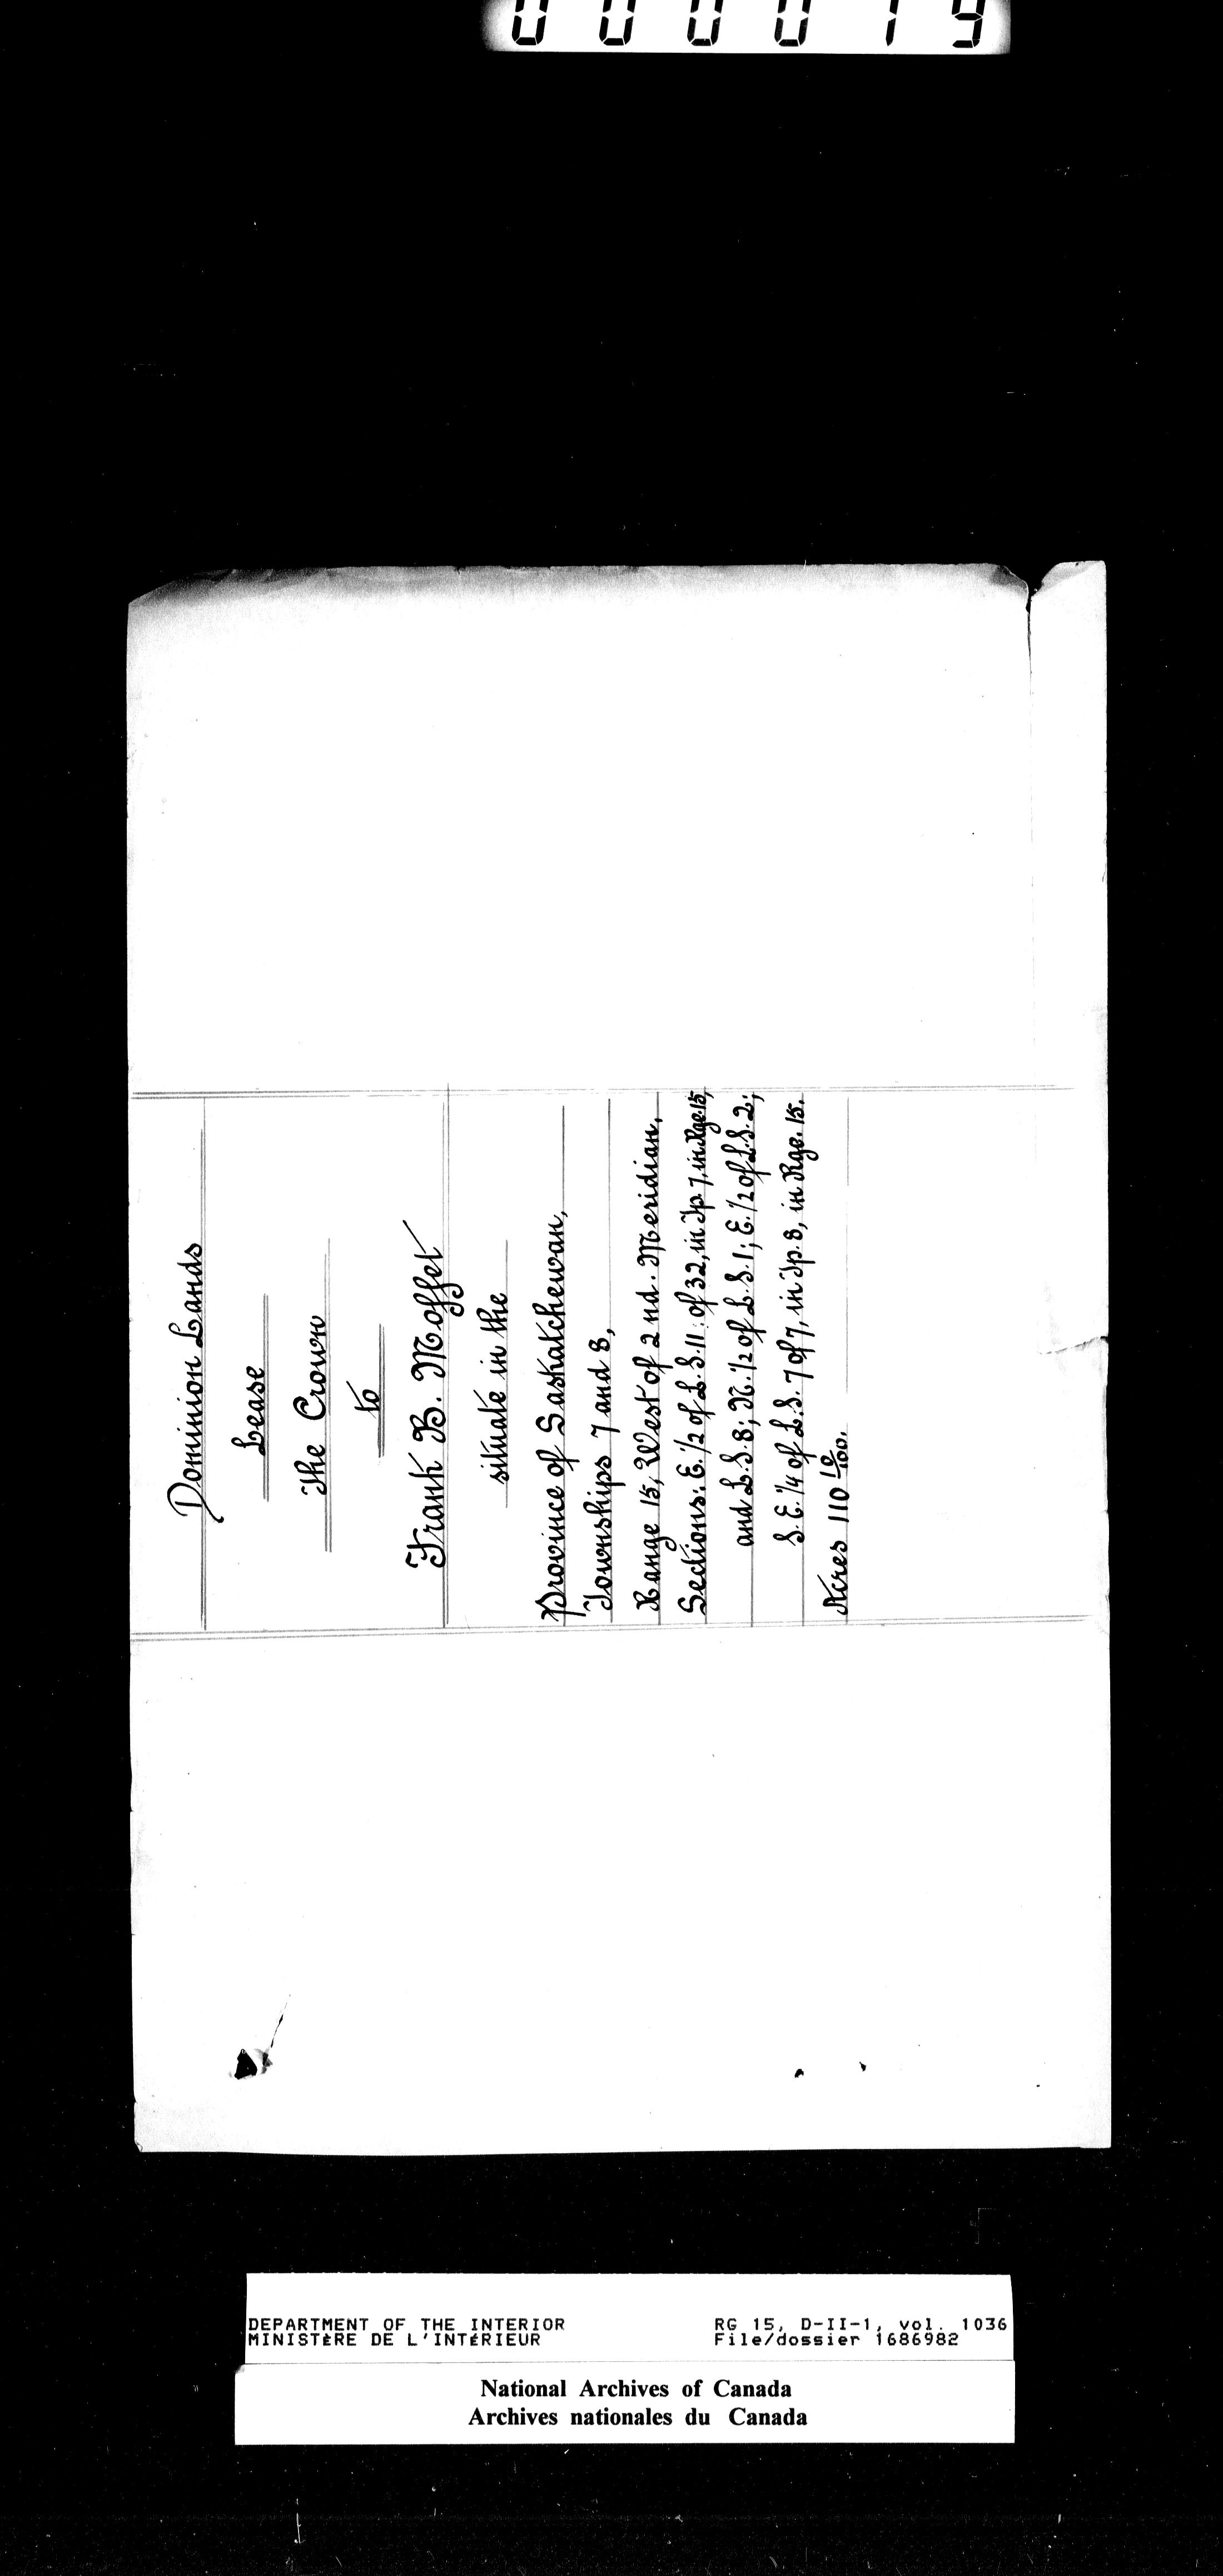 000019
Dominion Lands
Lease
The Crown
to
Frank B. Moffet
situate in the
Province of Saskatchewan,
Townships 7 and 8,
Range 15, West of 2nd. Meridian,
Sections: E. 1/2 of L.S. 11 of 32, in Tp. 7, in Rge. 15,
and L.S. 8; N. 1/2 of L.S. 1; E. 1/2 of L.S. 2;
S.E. 1/4 of L.S. 7 of 7, in Tp. 8, in Rge. 15.
Acres 110 10/100.
DEPARTMENT OF THE INTERIOR RG 15, D-II-1, vol. 1036
MINISTÈRE DE L'INTÉRIEUR File/dossier 1686982
National Archives of Canada
Archives nationales du Canada